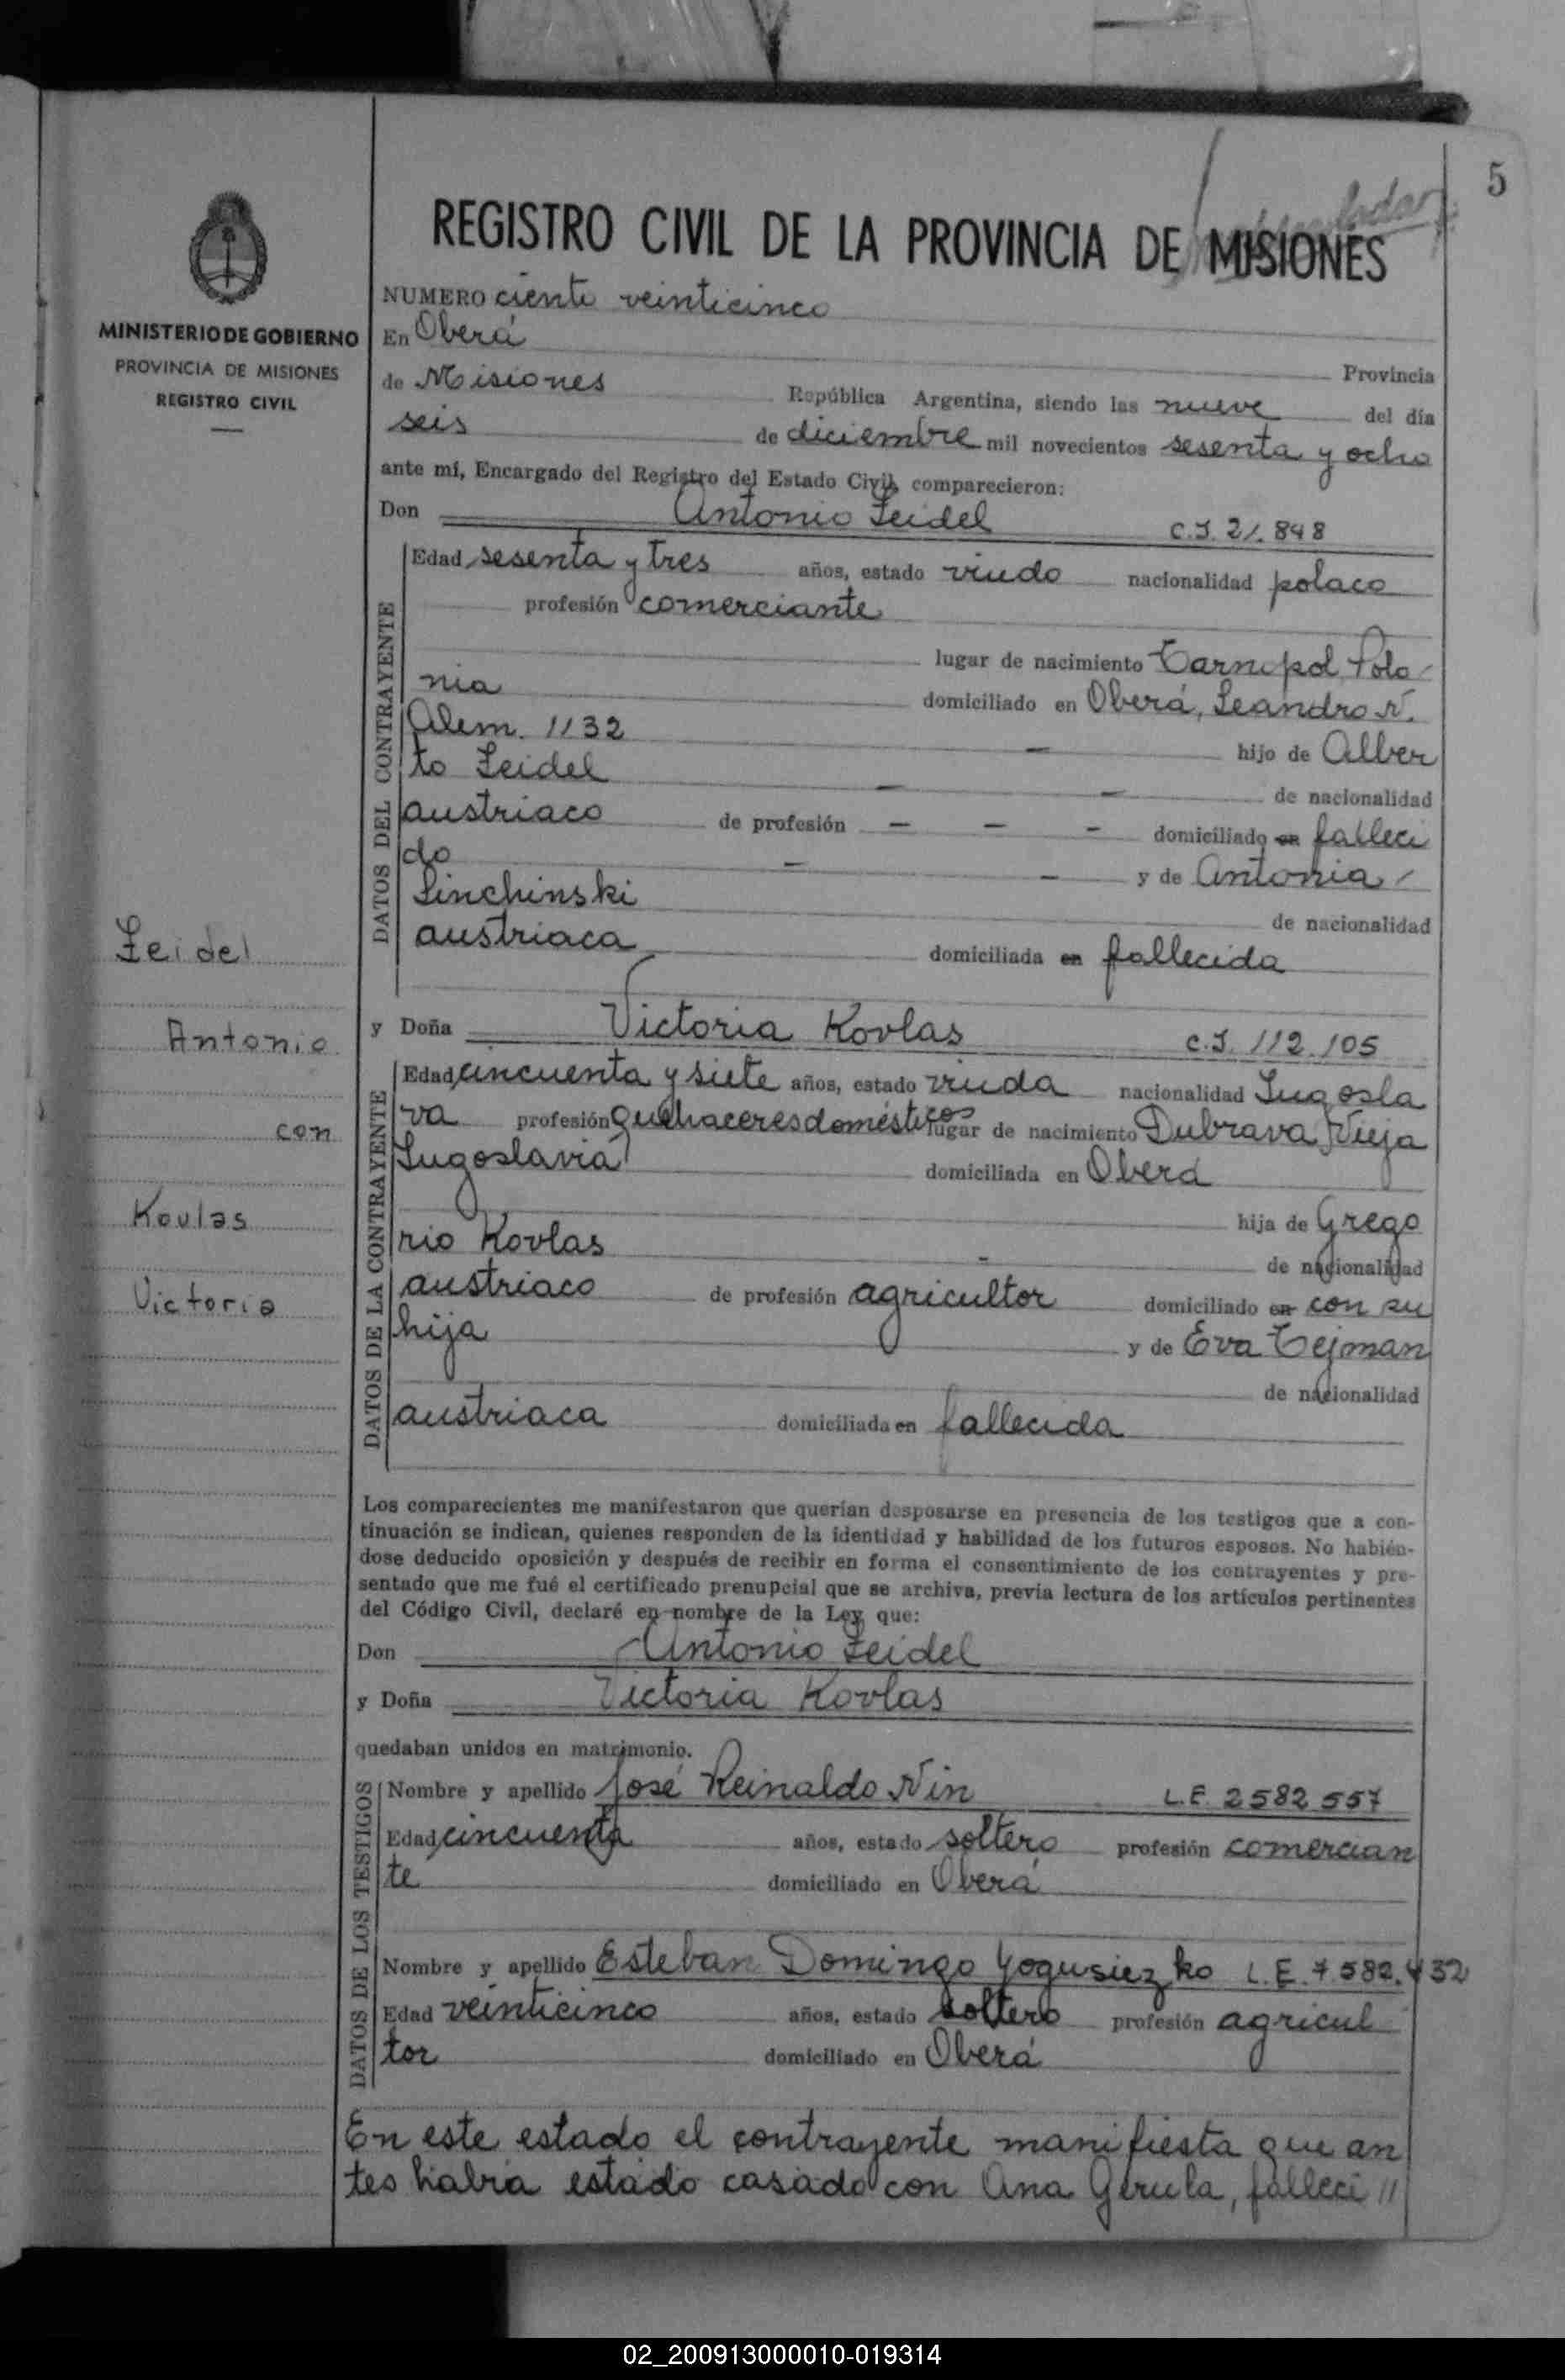 5
REGISTRO CIVIL DE LA PROVINCIA DE MISIONES
MINISTERIO DE GOBIERNO
PROVINCIA DE MISIONES
REGISTRO CIVIL
NUMERO ciento veinticinco
En Oberá
Provincia
de Misiones República Argentina, siendo las nueve del día
seis de diciembre mil novecientos sesenta y ocho
ante mí, Encargado del Registro del Estado Civil, comparecieron:
Don Antonio Zeidel C.I. 21.848
DATOS DEL CONTRAYENTE
Edad sesenta y tres años, estado viudo nacionalidad polaco
profesión comerciante
lugar de nacimiento Tarnopol Polo
nia domiciliado en Oberá, Leandro N.
Alem. 1132 — hijo de Alber
to Zeidel — — de nacionalidad
austriaco de profesión — — — domiciliado en falleci
do — — y de Antonia
Linchinski de nacionalidad
austriaca domiciliada en fallecida
Zeidel
Antonio
con
Kovlas
Victoria
y Doña Victoria Kovlas C.I. 112.105
DATOS DE LA CONTRAYENTE
Edad cincuenta y siete años, estado viuda nacionalidad Iugosla
va profesión quehaceres domésticos lugar de nacimiento Dubrava Vieja
Iugoslavia domiciliada en Oberá
hija de Grego
rio Kovlas - de nacionalidad
austriaco de profesión agricultor domiciliado en con su
hija y de Eva Tejman
de nacionalidad
austriaca domiciliada en fallecida
Los comparecientes me manifestaron que querían desposarse en presencia de los testigos que a con-
tinuación se indican, quienes responden de la identidad y habilidad de los futuros esposos. No habién-
dose deducido oposición y después de recibir en forma el consentimiento de los contrayentes y pre-
sentado que me fué el certificado prenupcial que se archiva, previa lectura de los artículos pertinentes
del Código Civil, declaré en nombre de la Ley que:
Don Antonio Zeidel
y Doña Victoria Kovlas
quedaban unidos en matrimonio.
DATOS DE LOS TESTIGOS
Nombre y apellido José Reinaldo Nin L.E. 2582557
Edad cincuenta años, estado soltero profesión comercian
te domiciliado en Oberá
Nombre y apellido Esteban Domingo Yogusiezko L.E. 7582.432
Edad veinticinco años, estado soltero profesión agricul
tor domiciliado en Oberá
En este estado el contrayente manifiesta que an
tes habia estado casado con Ana Gerula, falleci //
02_200913000010-019314